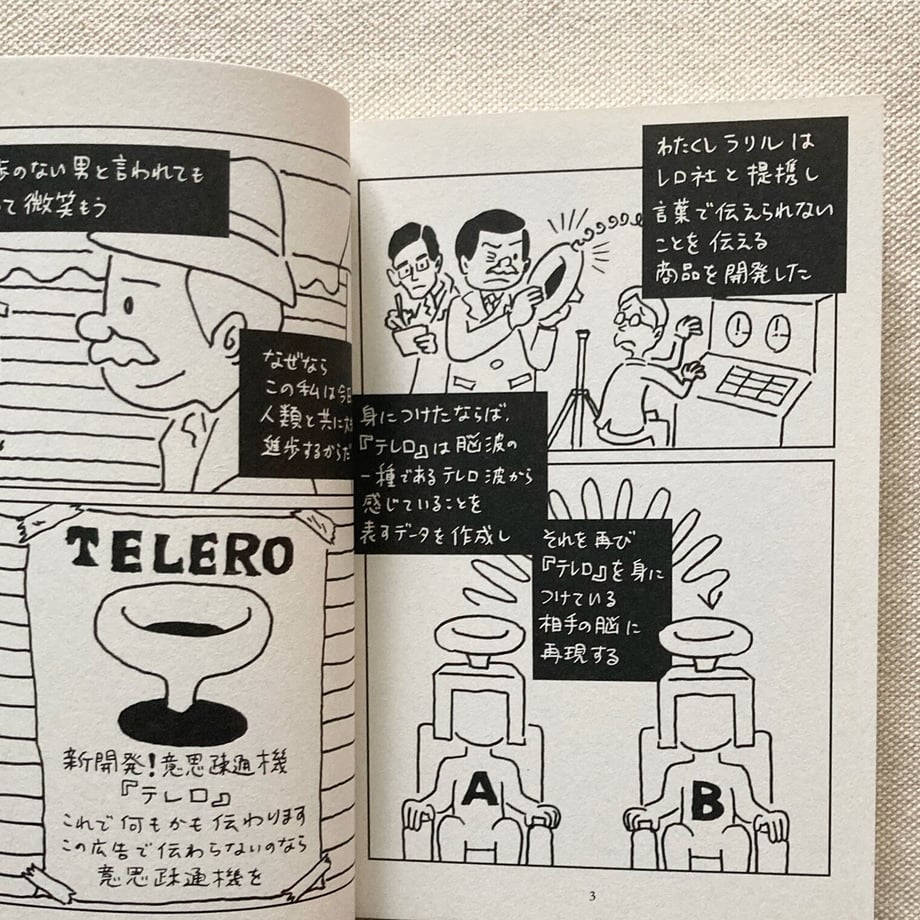 歩のない男と言われても
って微笑もう
なぜなら
この私は今日
人類と共に大
進歩するからだ
TELERO
新開発!意思疎通機
『テレロ』
これで何もかも伝わります
この広告で伝わらないのなら
意思疎通機を
わたくしラリルは
レロ社と提携し
言葉で伝えられない
ことを伝える
商品を開発した
身につけたならば、
『テレロ』は脳波の
一種であるテレロ波から
感じていることを
表すデータを作成し
それを再び
『テレロ』を身に
つけている
相手の脳に
再現する
A
B
3